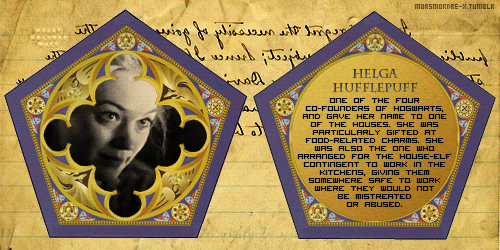 MORSMORDRE-X.TUMBLR
HELGA
HUFFLEPUFF
ONE OF THE FOUR
CO-FOUNDERS OF HOGWARTS,
AND GAVE HER NAME TO ONE
OF THE HOUSES. SHE WAS
PARTICULARLY GIFTED AT
FOOD-RELATED CHARMS. SHE
WAS ALSO THE ONE WHO
ARRANGED FOR THE HOUSE-ELF
CONTINGENT TO WORK IN THE
KITCHENS, GIVING THEM
SOMEWHERE SAFE TO WORK
WHERE THEY WOULD NOT
BE MISTREATED
OR ABUSED.